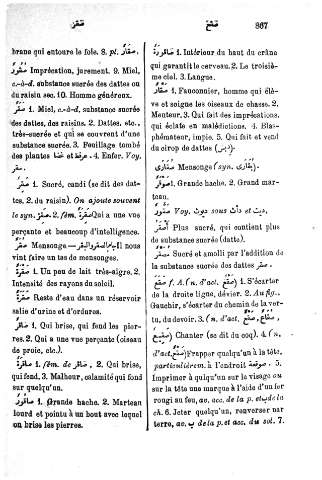 صقر
صقع
867
brane qui entoure le foie. 8. pl. صقار
صقور Imprécation, jurement. 9. Miel,
c.-à-d. substance sucrée des dattes ou
du raisin sec. 10. Homme généreux.
صقر 1. Miel, c.-à-d. substance sucrée
des dattes, des raisins. 2. Dattes, etc.,
très-sucrée et qui se couvrent d'une
substance sucrée. 3. Feuillage tombé
des plantes. 4. Enfer. Voy.
صقر
صقر 1. Sucré, candi (se dit des dat-
tes, 2. du raisin). On ajoute souvent
le syn. 2. fém. Qui a une vue
perçante et beaucoup d'intelligence.
Mensonge Il nous
vint faire un tas de mensonges.
صقرة 1. Un peu de lait très-aigre. 2.
Intensité des rayons du soleil.
Reste d'eau dans un réservoir
salie d'urine et d'ordures.
صاقر 1. Qui brise, qui fend les pier-
res. 2. Qui a une vue perçante (oiseau
de proie, etc.).
صاقرة 1. fém. de صاقر. 2. Qui brise,
qui fend. 3. Malheur, calamité qui fond
sur quelqu'un.
صاقور 1. Grande hache. 2. Marteau
lourd et pointu à un bout avec lequel
on brise les pierres.
صاقورة 1. Intérieur du haut du crâne
qui garantit le cerveau. 2. Le troisiè-
me ciel. 3. Langue.
صقار 1. Fauconnier, homme qui élè-
ve et soigne les oiseaux de chasse. 2.
Menteur. 3. Qui fait des imprécations,
qui éclate en malédictions. 4. Blas-
phémateur, impie. 5. Qui fait et vend
du cirop de dattes (دبس).
Mensonge (syn.
1. Grande hache. 2. Grand mar-
teau.
Voy.
أصقر Plus sucré, qui contient plus
de substance sucrée (datte).
مصقر Sucré et amolli par l'addition de
la substance sucrée des dattes صقر.
صقع f. A. (n. d'act. صقع) 1. S'écarter
de la droite ligne, dévier. 2. Au fig.,
Gauchir, s'écarter du chemin de la ver-
tu, du devoir. 3. (n. d'act.
Chanter (se dit du coq). 4. (n.
d'act. صقع) Frapper quelqu'un à la tête,
particulièrem. à l'endroit 5.
Imprimer à quelqu'un sur le visage ou
sur la tête une marque à l'aide d'un fer
rougi au feu, av. acc. de la p. et ب de la
ch. 6. Jeter quelqu'un, renverser par
terre, av. ب de la p. et acc. du sol. 7.